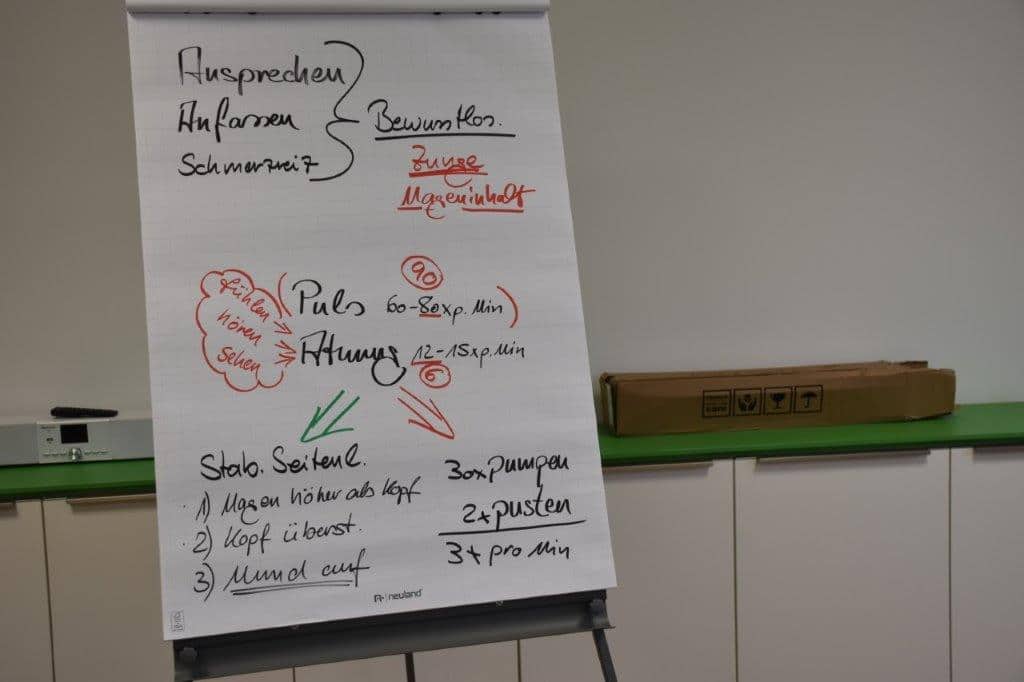 Ansprechen
Anfassen
Schmerzreiz
Bewusstlos.
Zunge
Mageninhalt
90
fühlen
hören
sehen
(Puls 60-80xp. Min)
Atmung 12-15xp. Min
6
Stab. Seitenl.
1) Magen höher als Kopf
2) Kopf überst.
3) Mund auf
30xpumpen
2xpusten
3x pro Min
neuland